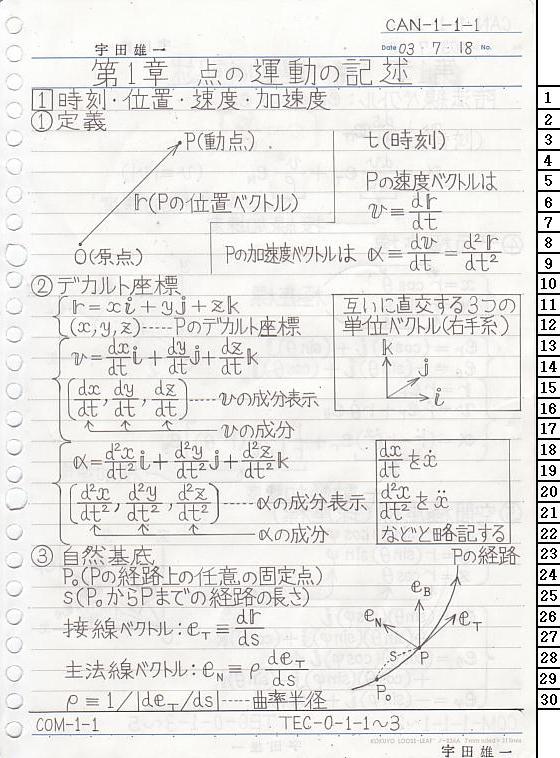 CAN-1-1-1
宇田雄一
Date 03・7・18 No.
第1章 点の運動の記述
1 時刻・位置・速度・加速度
① 定義
P(動点)
t(時刻)
Pの速度ベクトルは
𝕣(Pの位置ベクトル)
𝕧≡d𝕣/dt
O(原点)
Pの加速度ベクトルは 𝕒≡d𝕧/dt=d²𝕣/dt²
② デカルト座標
𝕣=x𝕚+y𝕛+z𝕜
(x,y,z)-----Pのデカルト座標
互いに直交する3つの
単位ベクトル(右手系)
𝕜
𝕛
𝕚
𝕧=dx/dt𝕚+dy/dt𝕛+dz/dt𝕜
(dx/dt,dy/dt,dz/dt)-----𝕧の成分表示
𝕧の成分
𝕒=d²x/dt²𝕚+d²y/dt²𝕛+d²z/dt²𝕜
(d²x/dt²,d²y/dt²,d²z/dt²)-----𝕒の成分表示
𝕒の成分
dx/dtをẋ
d²x/dt²をẍ
などと略記する
③ 自然基底
Pの経路
P₀(Pの経路上の任意の固定点)
s(P₀からPまでの経路の長さ)
接線ベクトル:𝕖T≡d𝕣/ds
主法線ベクトル:𝕖N≡ρ d𝕖T/ds
ρ≡1/|d𝕖T/ds|-----曲率半径
𝕖B
𝕖N
𝕖T
s
P
P₀
COM-1-1
TEC-0-1-1～3
KOKUYO LOOSE-LEAF
宇田雄一
1
2
3
4
5
6
7
8
9
10
11
12
13
14
15
16
17
18
19
20
21
22
23
24
25
26
27
28
29
30